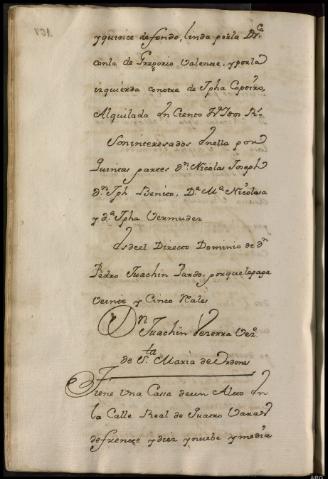 y quince de fondo, linda por la Dra
con la de Gregorio Valense, y por la
izquierda con otra de Jpha Capeira,
Alquilada en Ciento
Son interesados en ella por
Quintas partes Dn Nicolas Joseph
Dn Jph Benito, Da Ma Nicolasa
y da Jpha Vermudez
Es del Directo Dominio de dn
Pedro Juachin Pardo, por que le paga
veinte y Cinco Rales
Dn Juachin Vezerra Vezo
de Sta Maria de Ordenes
Tiene Una Cassa de un Alto en
la Calle Real de Quatro Varas
de frente, y diez y nuebe y media